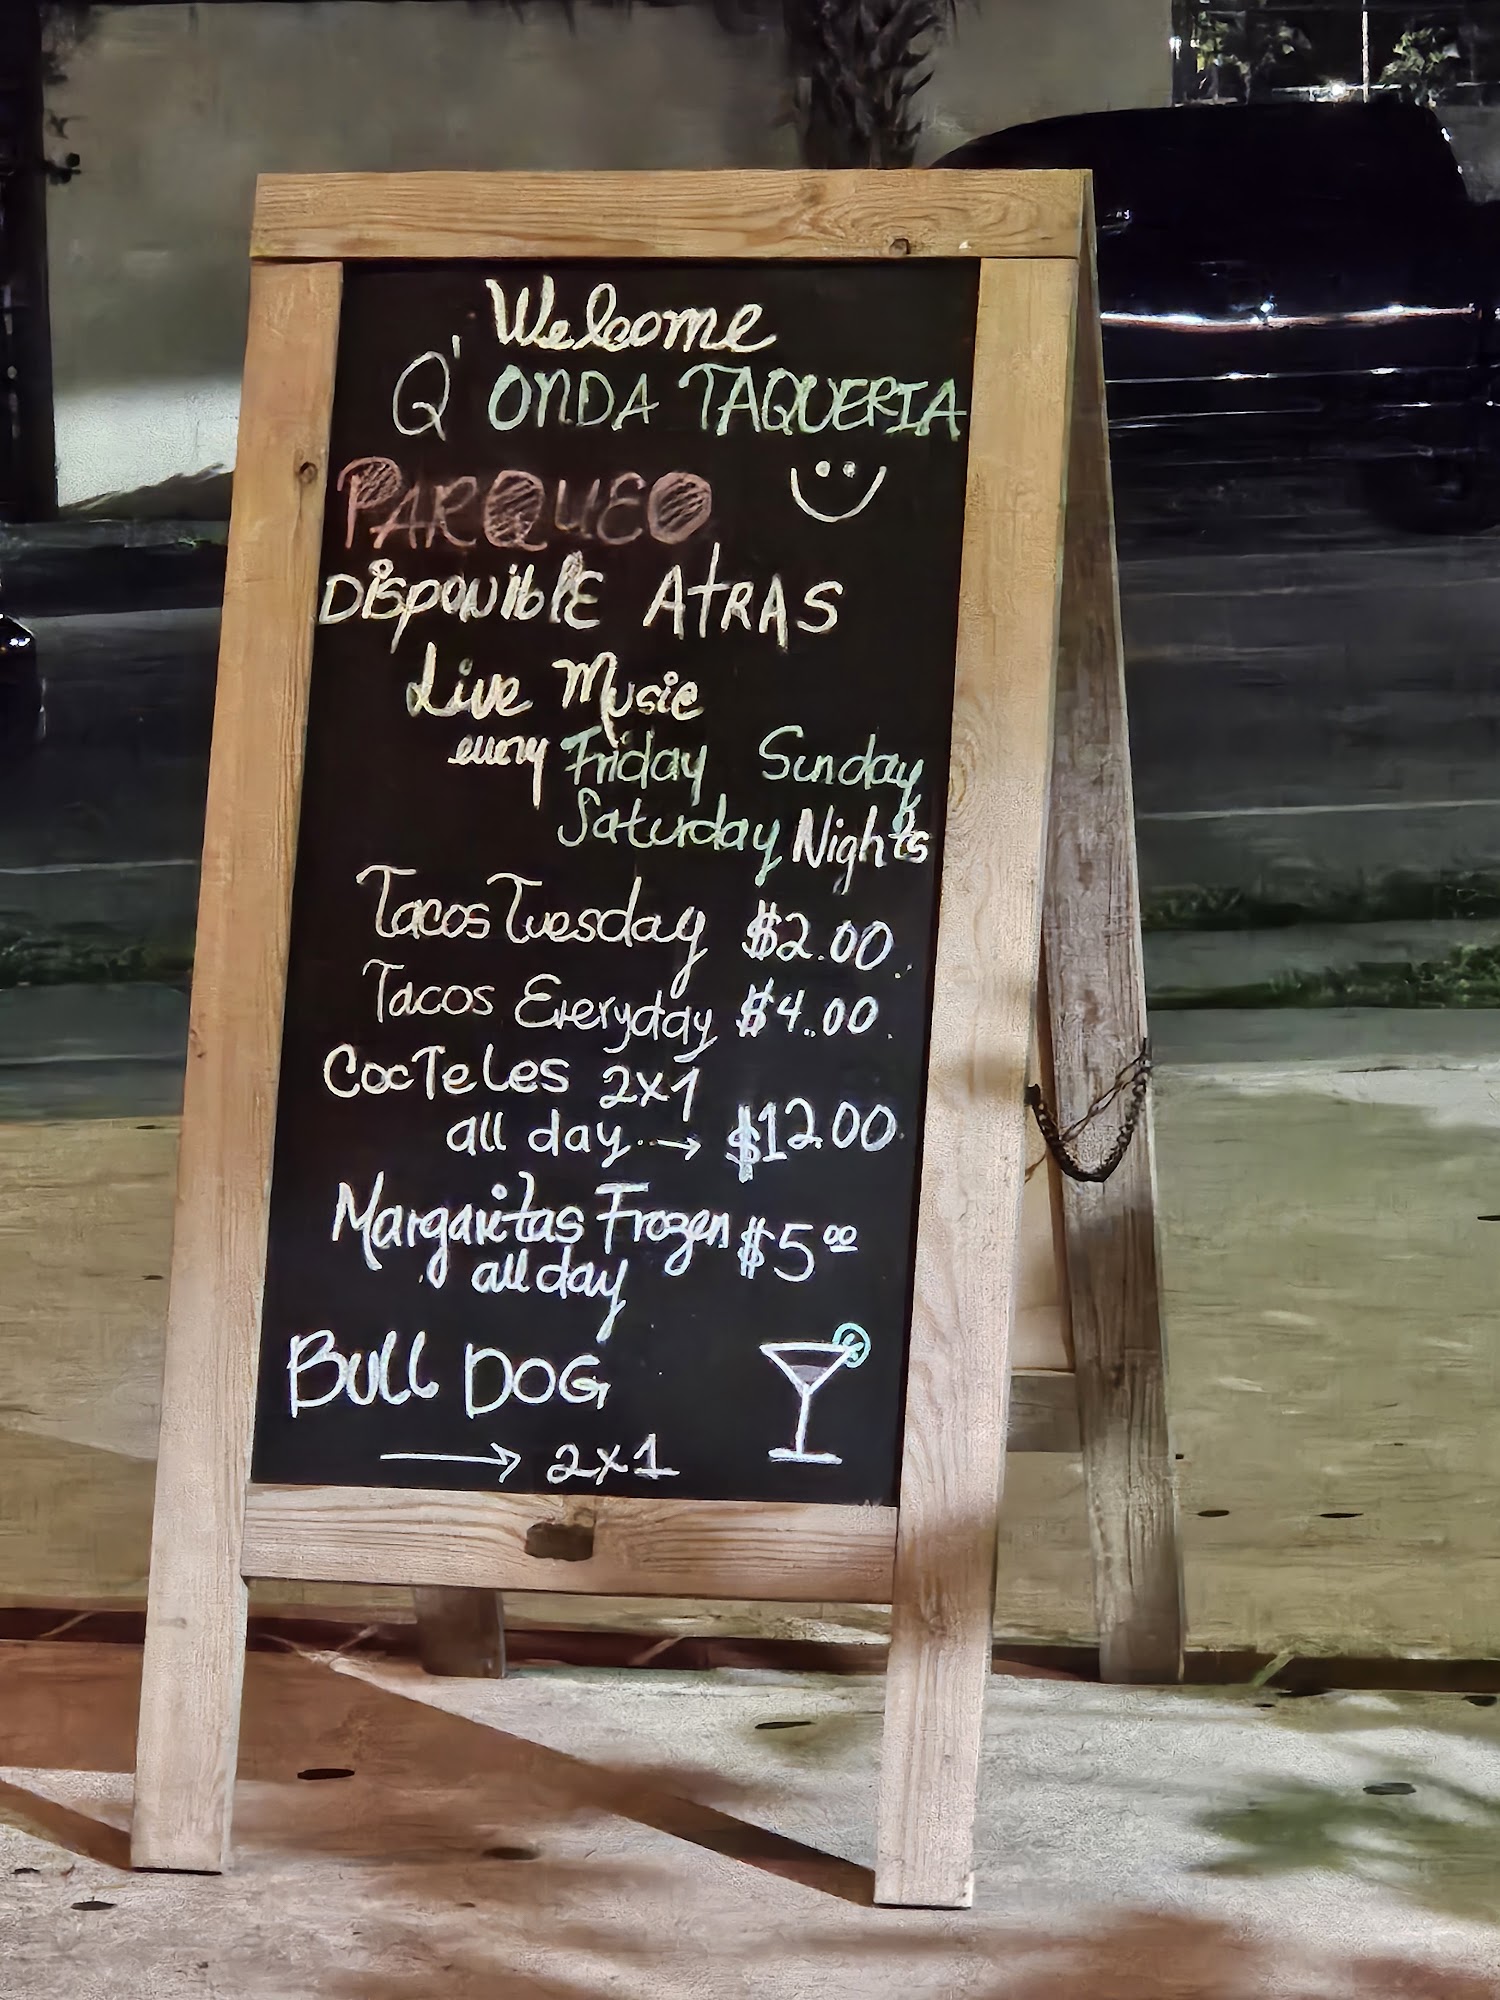 Welcome
Q' ONDA TAQUERIA
PARQUEO
DISPONIBLE ATRAS
Live Music
every Friday Sunday
Saturday Nights
Tacos Tuesday $2.00
Tacos Everyday $4.00
CocTeles 2x1
all day → $12.00
Margaritas Frozen $5.00
all day
BUll DOG
→ 2x1